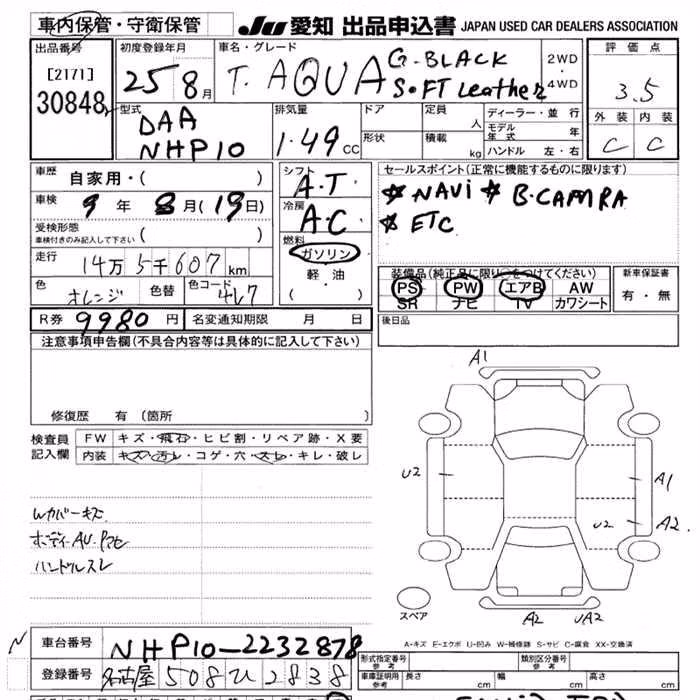 車内保管・守衛保管
JU 愛知 出品申込書 JAPAN USED CAR DEALERS ASSOCIATION
出品番号
[2171]
30848
初度登録年月
25 8月
車名・グレード
T. AQUA G・BLACK
S・OFT Leather
2WD
・
4WD
評価点
3.5
外装 内装
C C
型式
DAA
NHP10
排気量
1.49 CC
ドア
形状
定員 人
積載 kg
ディーラー・並行
モデル年式 年
ハンドル 左・右
車歴 自家用・( )
車検 9年 8月(19日)
受検形態
車検付きのみ記入して下さい ( )
走行 14万5千607 km
色 オレンジ 色替 色コード 4L7
シフト
A.T
冷房
A.C
燃料
ガソリン
軽・油
( )
セールスポイント(正常に機能するものに限ります)
☆ NAVi ☆ B.CAMRA
☆ ETC
装備品(純正品に限り○をつけてください)
PS PW エアB AW
SR ナビ TV カワシート
新車保証書
有・無
R券 9980 円 名変通知期限 月 日
後日品
注意事項申告欄(不具合内容等は具体的に記入して下さい)
修復歴 有(箇所 )
検査員記入欄
FW キズ・飛石・ヒビ割・リペア跡・X要
内装 キズ・汚レ・コゲ・穴・スレ・キレ・破レ
Wカバーキズ
ハンドルスレ
A1
U2
A1
U2 A2
スペア
A2 UA2
A・キズ E・エクボ U・凹み W・補修跡 S・サビ C・腐食 XX・交換済
N
車台番号 NHP10-2232878
登録番号 名古屋 508 ひ 2838
形式指定番号 参考
類別区分番号 参考
車庫証明用 参考 長さ cm 幅 cm 高さ cm